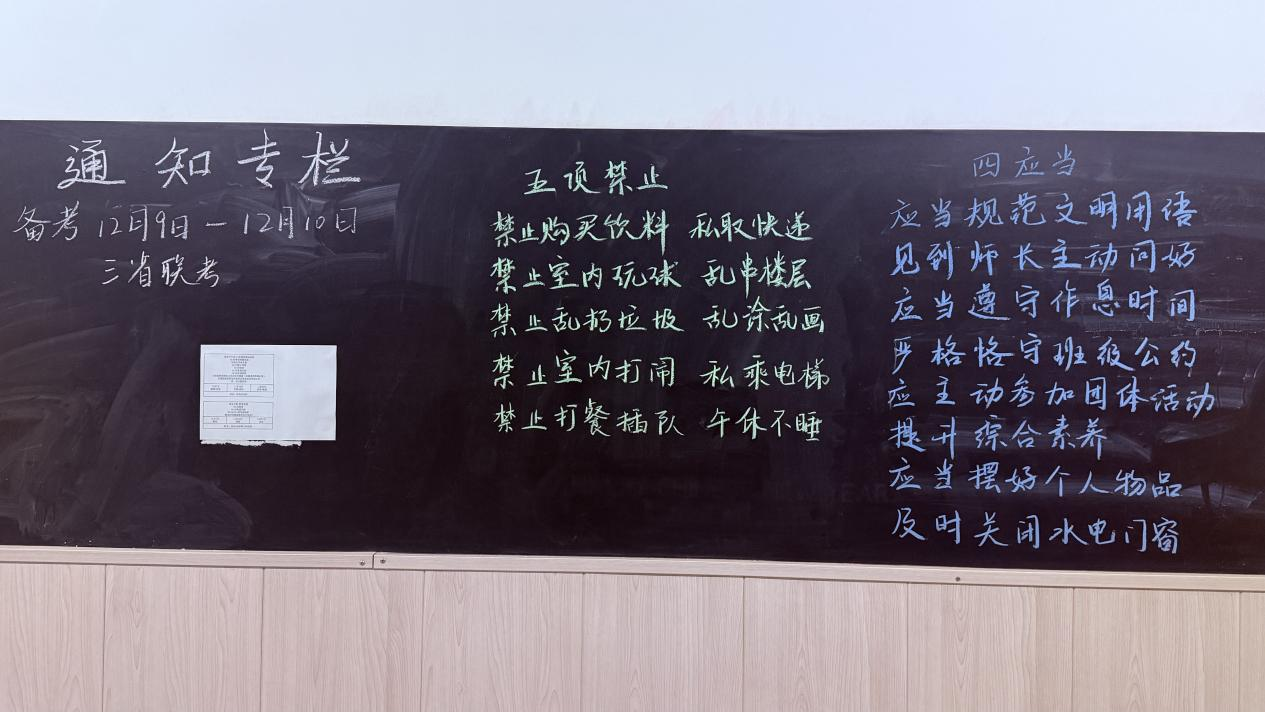 通知专栏
备考12月9日—12月10日
三省联考
五项禁止
禁止购买饮料 私取快递
禁止室内玩球 乱串楼层
禁止乱扔垃圾 乱涂乱画
禁止室内打闹 私乘电梯
禁止打餐插队 午休不睡
四应当
应当规范文明用语
见到师长主动问好
应当遵守作息时间
严格恪守班级公约
应主动参加团体活动
提升综合素养
应当摆好个人物品
及时关闭水电门窗